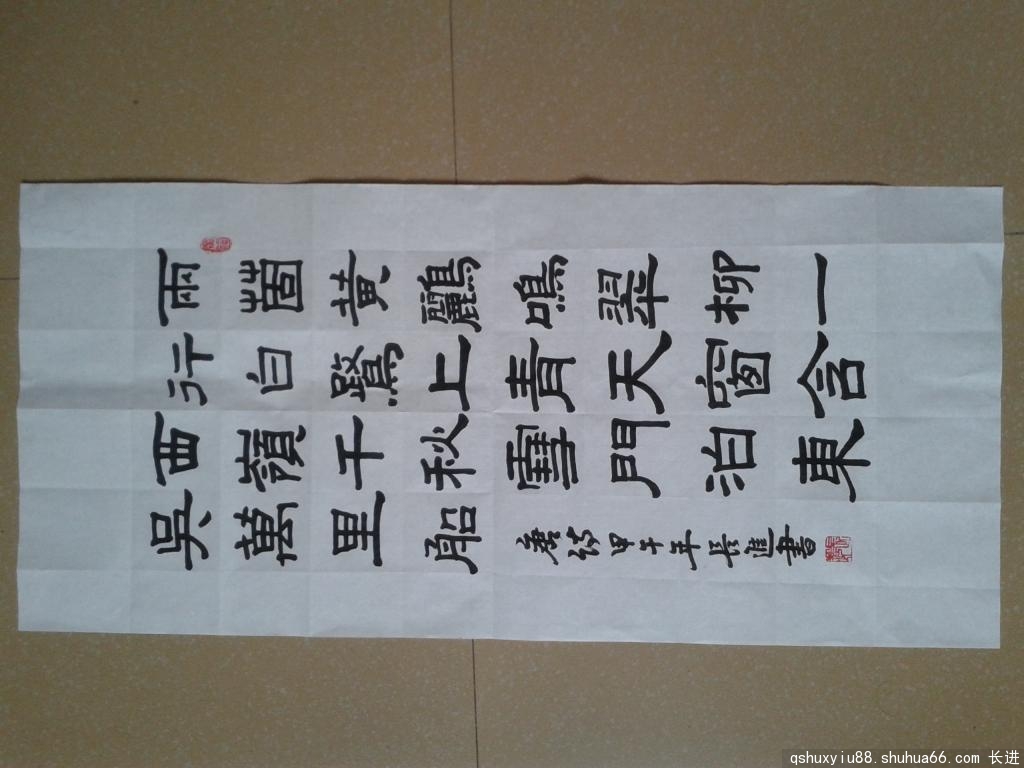 兩箇黄鸝鳴翠柳一
行白鷺上青天窗含
西嶺千秋雪門泊東
吳萬里船
唐詩甲午年長進書
qshuxyiu88.shuhua66.com 长进